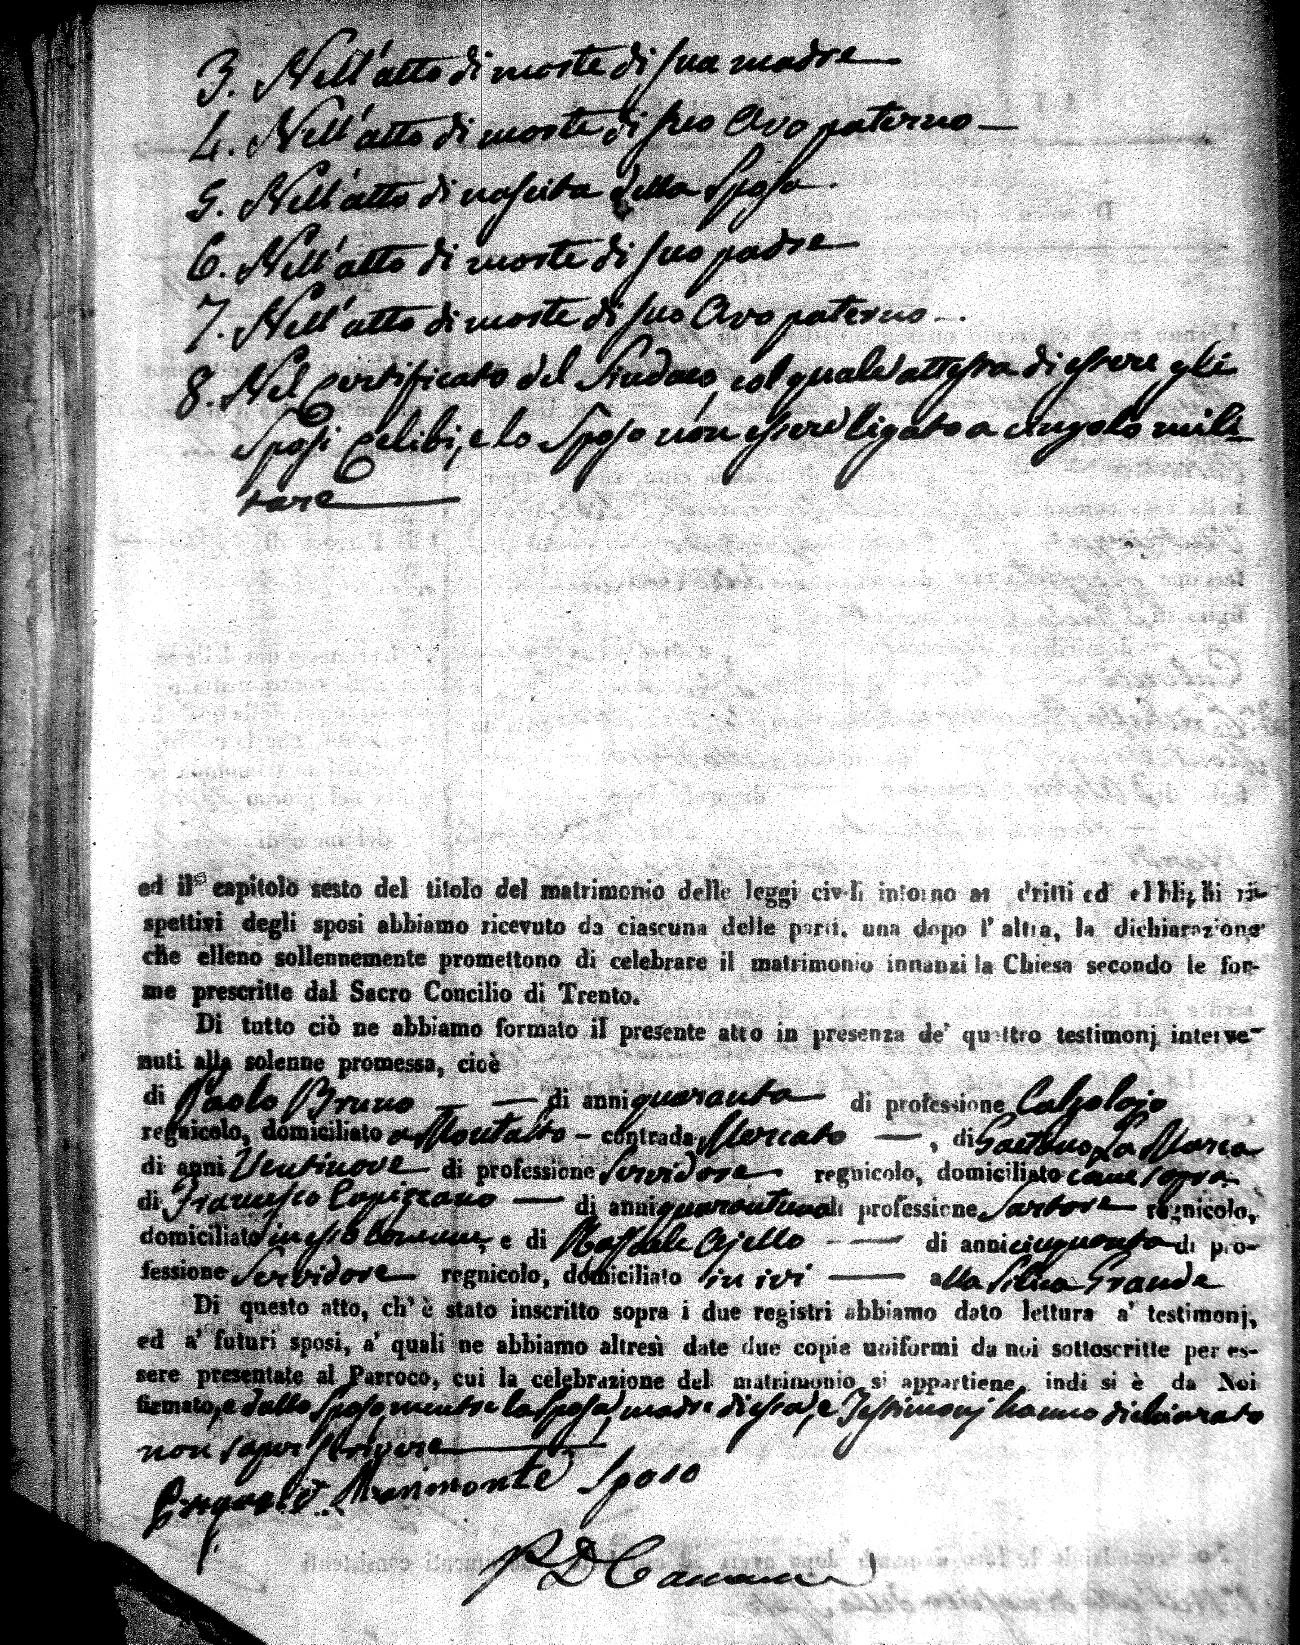 3. Nell'atto di morte di sua madre
4. Nell'atto di morte di suo Avo paterno
5. Nell'atto di nascita della Sposa.
6. Nell'atto di morte di suo padre
7. Nell'atto di morte di suo Avo paterno
8. Nel Certificato del Sindaco, col quale attesta di essere gli
Sposi Celibi, e lo Sposo non essere ligato a vingolo mili-
tare
ed il capitolo sesto del titolo del matrimonio delle leggi civili intorno ai dritti ed obblighi ri-
spettivi degli sposi abbiamo ricevuto da ciascuna delle parti, una dopo l'altra, la dichiarazione
che elleno sollennemente promettono di celebrare il matrimonio innanzi la Chiesa secondo le for-
me prescritte dal Sacro Concilio di Trento.
Di tutto ciò ne abbiamo formato il presente atto in presenza de' quattro testimonj interve-
nuti alla solenne promessa, cioè
di Paolo Bruno di anni quaranta di professione Calzolajo
regnicolo, domiciliato a Montalto contrada Mercato, di Gaetano La Marca
di anni Ventinove di professione Servidore regnicolo, domiciliato come sopra
di Francesco di anni quarantuno di professione Sartore regnicolo,
domiciliato in esso Comune, e di Raffaele Ajello di anni cinquanta di pro-
fessione Servidore regnicolo, domiciliato in ivi alla Silica Grande
Di questo atto, ch'è stato inscritto sopra i due registri abbiamo dato lettura a' testimonj,
ed a' futuri sposi, a' quali ne abbiamo altresì date due copie uniformi da noi sottoscritte per es-
sere presentate al Parroco, cui la celebrazione del matrimonio si appartiene, indi si è da Noi
firmato, e dallo Sposo, mentre la Sposa, madre di essa, e Testimonj hanno dichiarato
non saper scrivere
Sposo